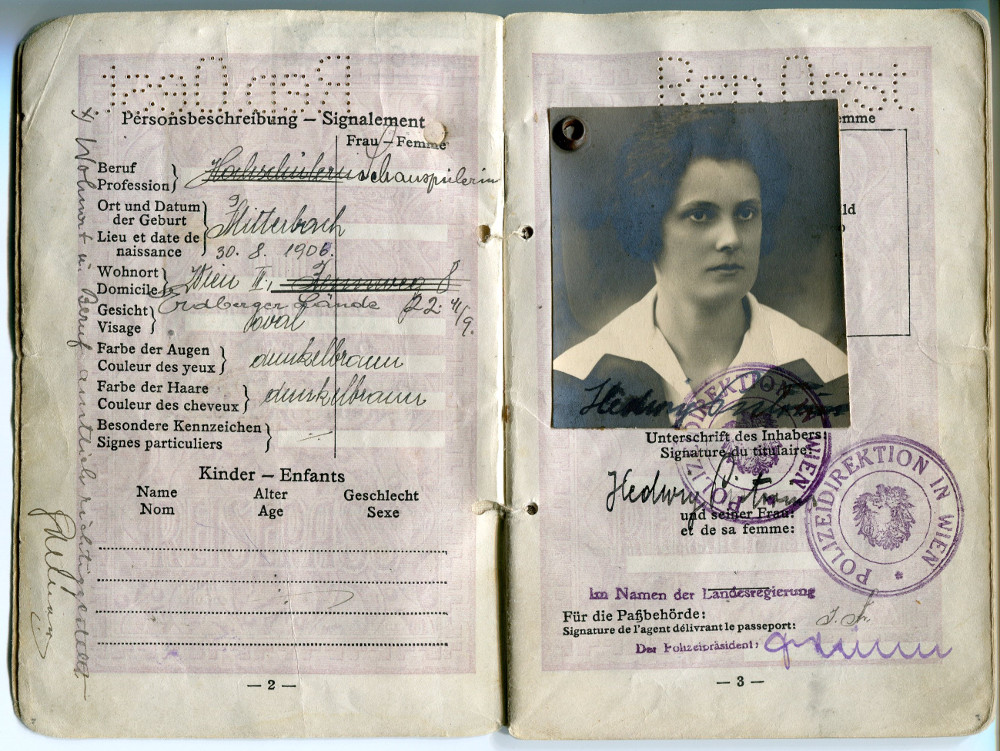 Rep. Oest.
Personsbeschreibung – Signalement
Frau – Femme
Beruf
Profession
Hochschülerin Schauspielerin
Ort und Datum
der Geburt
Mitterbach
Lieu et date de
naissance
30. 8. 1906.
Wohnort
Domicile
Wien III., Rennweg 8
Erdberger Lände
Gesicht
Visage
oval
Farbe der Augen
Couleur des yeux
dunkelbraun
Farbe der Haare
Couleur des cheveux
dunkelbraun
Besondere Kennzeichen
Signes particuliers
Kinder – Enfants
Name Alter Geschlecht
Nom Age Sexe
– 2 –
x) Wohnort u. Beruf amtlich richtiggestellt
Rep. Oest.
emme
ld
Hedwig
POLIZEIDIREKTION IN WIEN
Unterschrift des Inhabers:
Signature du titulaire:
Hedwig
und seiner Frau:
et de sa femme:
POLIZEIDIREKTION IN WIEN
Im Namen der Landesregierung
Für die Paßbehörde:
Signature de l'agent délivrant le passeport:
Der Polizeipräsident:
– 3 –